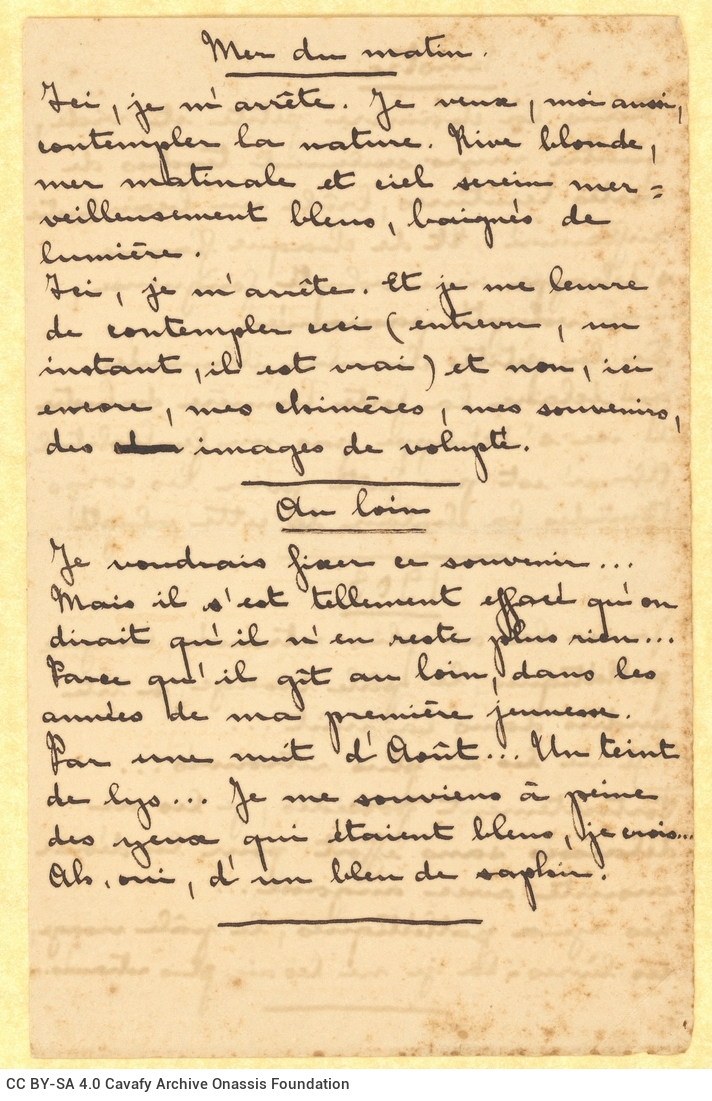 Mer du matin.
Ici, je m'arrête. Je veux, moi aussi,
contempler la nature. Rive blonde,
mer matinale et ciel serein mer=
veilleusement bleus, baignés de
lumière.
Ici, je m'arrête. Et je me leurre
de contempler ceci (entrevu, un
instant, il est vrai) et non, ici
encore, mes chimères, mes souvenirs,
des images de volupté.
Au loin
Je voudrais fixer ce souvenir...
Mais il s'est tellement effacé qu'on
dirait qu'il n'en reste plus rien...
Parce qu'il gît au loin, dans les
années de ma première jeunesse.
Par une nuit d'Août... Un teint
de lys... Je me souviens à peine
des yeux qui étaient bleus, je crois...
Ah, oui, d'un bleu de saphir.
CC BY-SA 4.0 Cavafy Archive Onassis Foundation